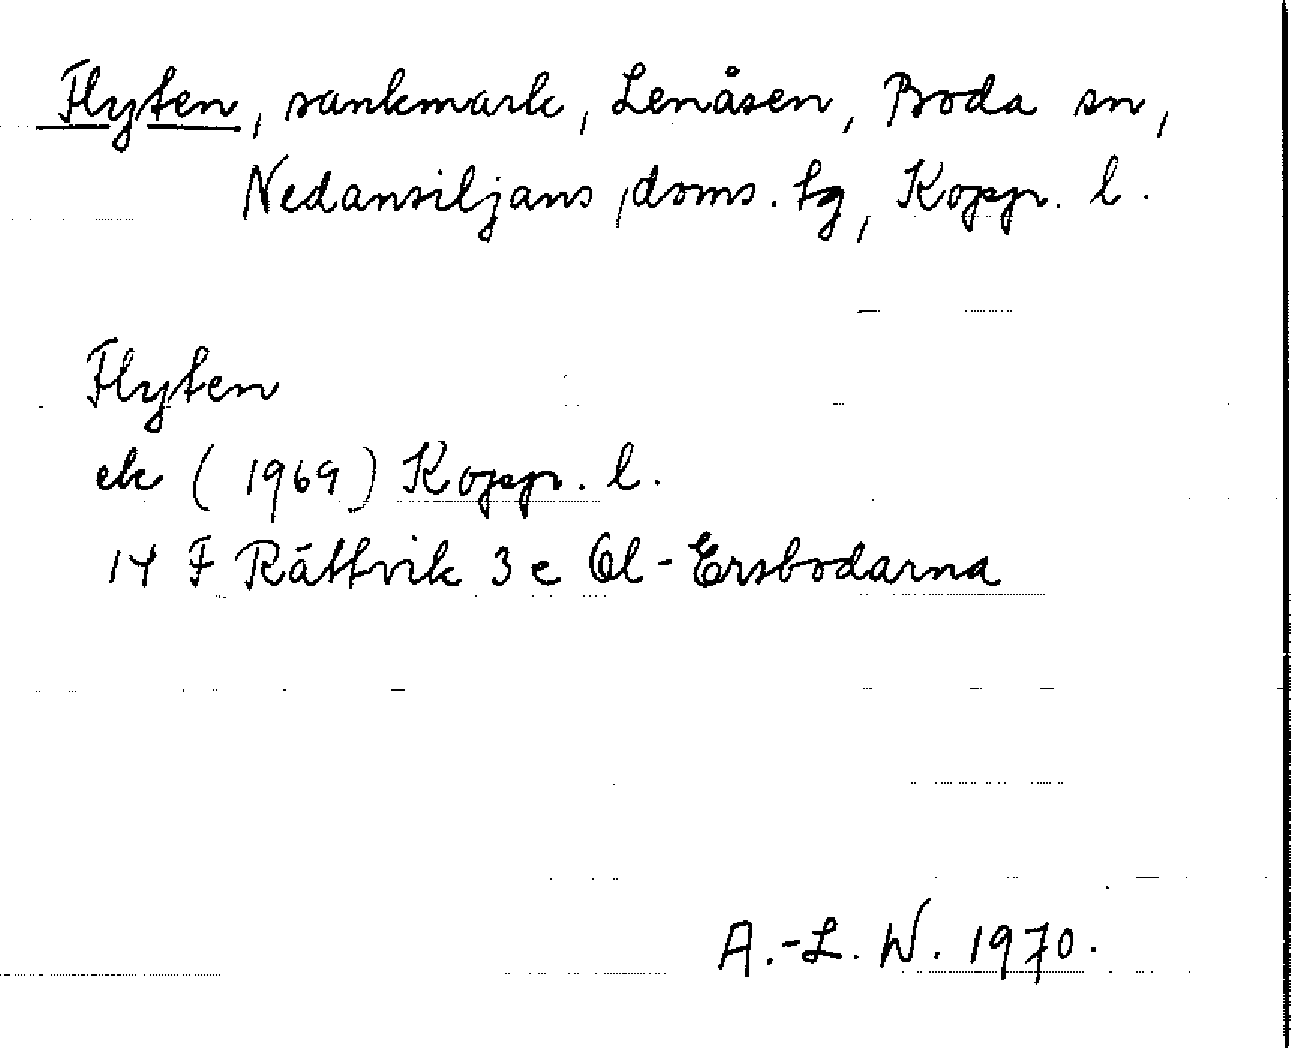 Flyten, sankmark, Lenåsen, Boda sn,
Nedansiljans doms. tg, Koppr. l.
Flyten
ek (1969) Koppr. l.
14 F Rättvik 3 e Ol-Ersbodarna
A.-L. W. 1970.